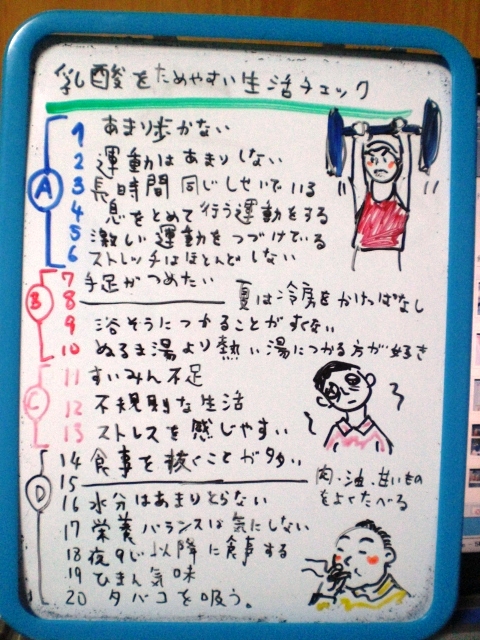 乳酸をためやすい生活チェック
A
1 あまり歩かない
2 運動はあまりしない
3 長時間同じしせいでいる
4 息をとめて行う運動をする
5 激しい運動をつづけている
6 ストレッチはほとんどしない
B
7 手足がつめたい
8 夏は冷房をかけっぱなし
9 浴そうにつかることがすくない
10 ぬるま湯より熱い湯につかる方が好き
C
11 すいみん不足
12 不規則な生活
13 ストレスを感じやすい
D
14 食事を抜くことが多い
15 肉・油・甘いもの
をよくたべる
16 水分はあまりとらない
17 栄養バランスは気にしない
18 夜9じ以降に食事する
19 ひまん気味
20 タバコを吸う。